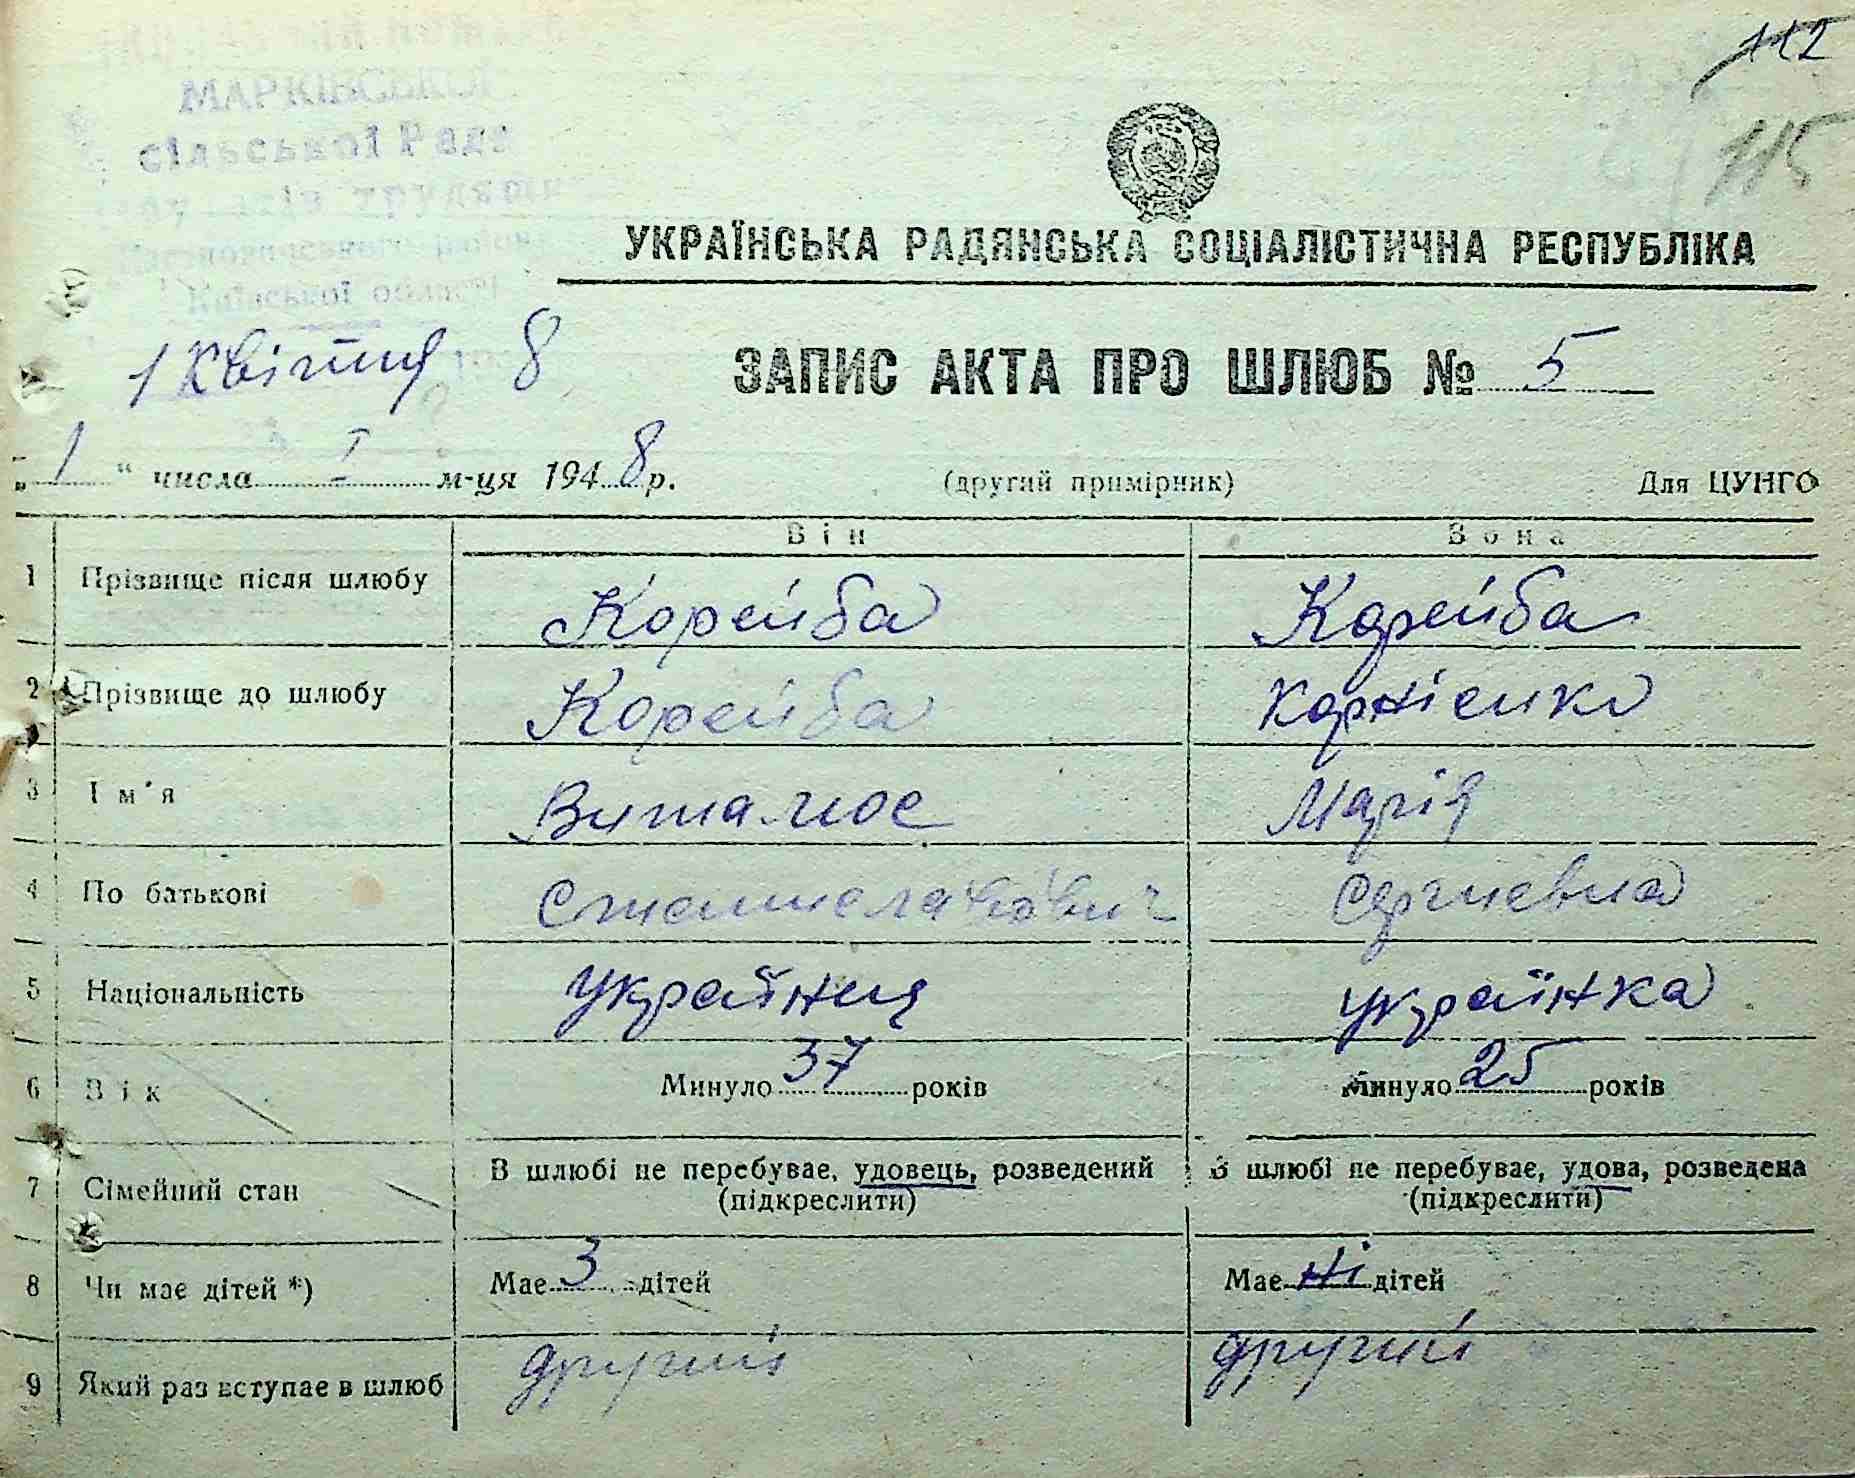 112
115
МАРКІВСЬКОЇ
сільської Ради
Київської області
УКРАЇНСЬКА РАДЯНСЬКА СОЦІАЛІСТИЧНА РЕСПУБЛІКА
1 Квітня 8
ЗАПИС АКТА ПРО ШЛЮБ № 5
„1“ числа I м-ця 1948 р. (другий примірник) Для ЦУНГО
Він Вона
1 Прізвище після шлюбу Корейба Корейба
2 Прізвище до шлюбу Корейба Корнієнко
3 Ім'я Виталюс Марія
4 По батькові Сергиевна
5 Національність Українця українка
6 Вік Минуло 37 років Минуло 25 років
7 Сімейний стан В шлюбі не перебуває, удовець, розведений В шлюбі не перебуває, удова, розведена
(підкреслити) (підкреслити)
8 Чи має дітей *) Має 3 дітей Має Ні дітей
9 Який раз вступає в шлюб другий другий